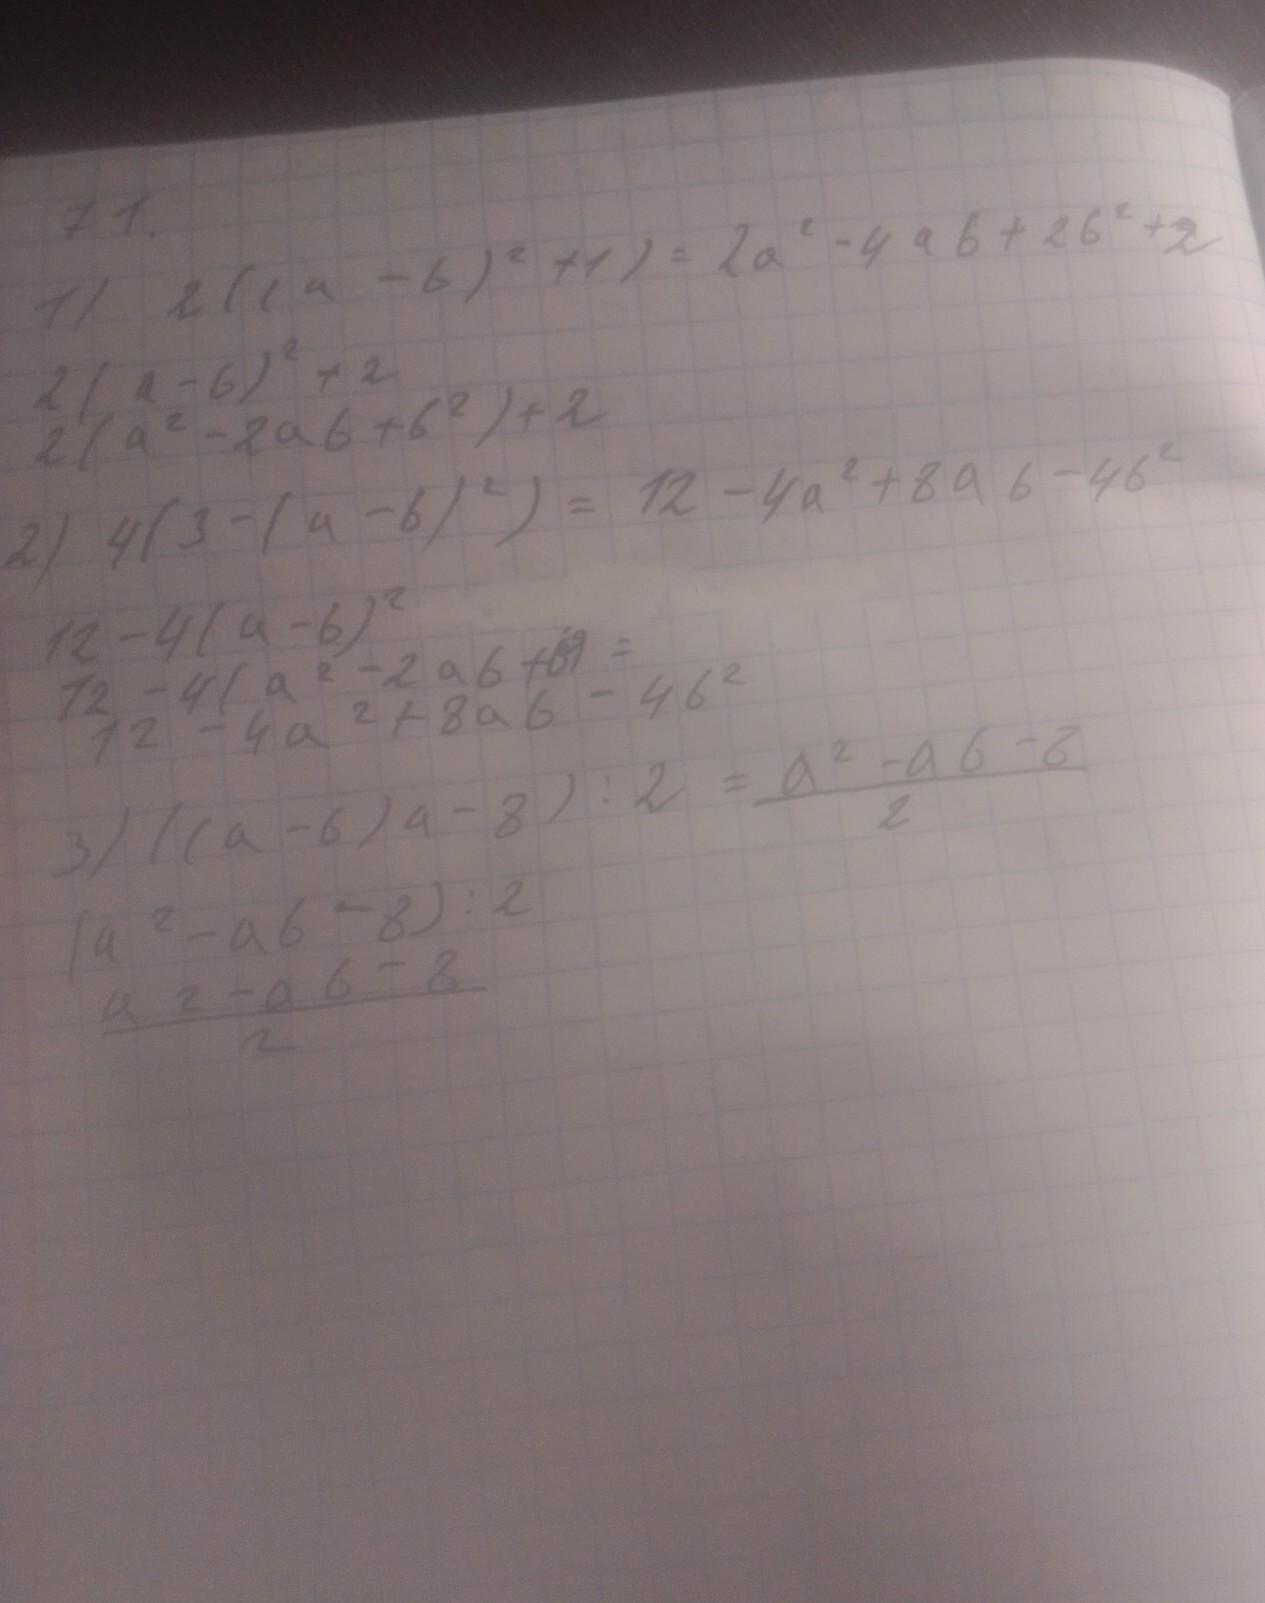 71.
1) 2((a-b)²+1)=2a²-4ab+2b²+2
2(a-b)²+2
2(a²-2ab+b²)+2
2) 4(3-(a-b)²)=12-4a²+8ab-4b²
12-4(a-b)²
12-4(a²-2ab+ =
12-4a²+8ab-4b²
3) ((a-b)a-8):2=\frac{a²-ab-8}{2}
(a²-ab-8):2
\frac{a²-ab-8}{2}